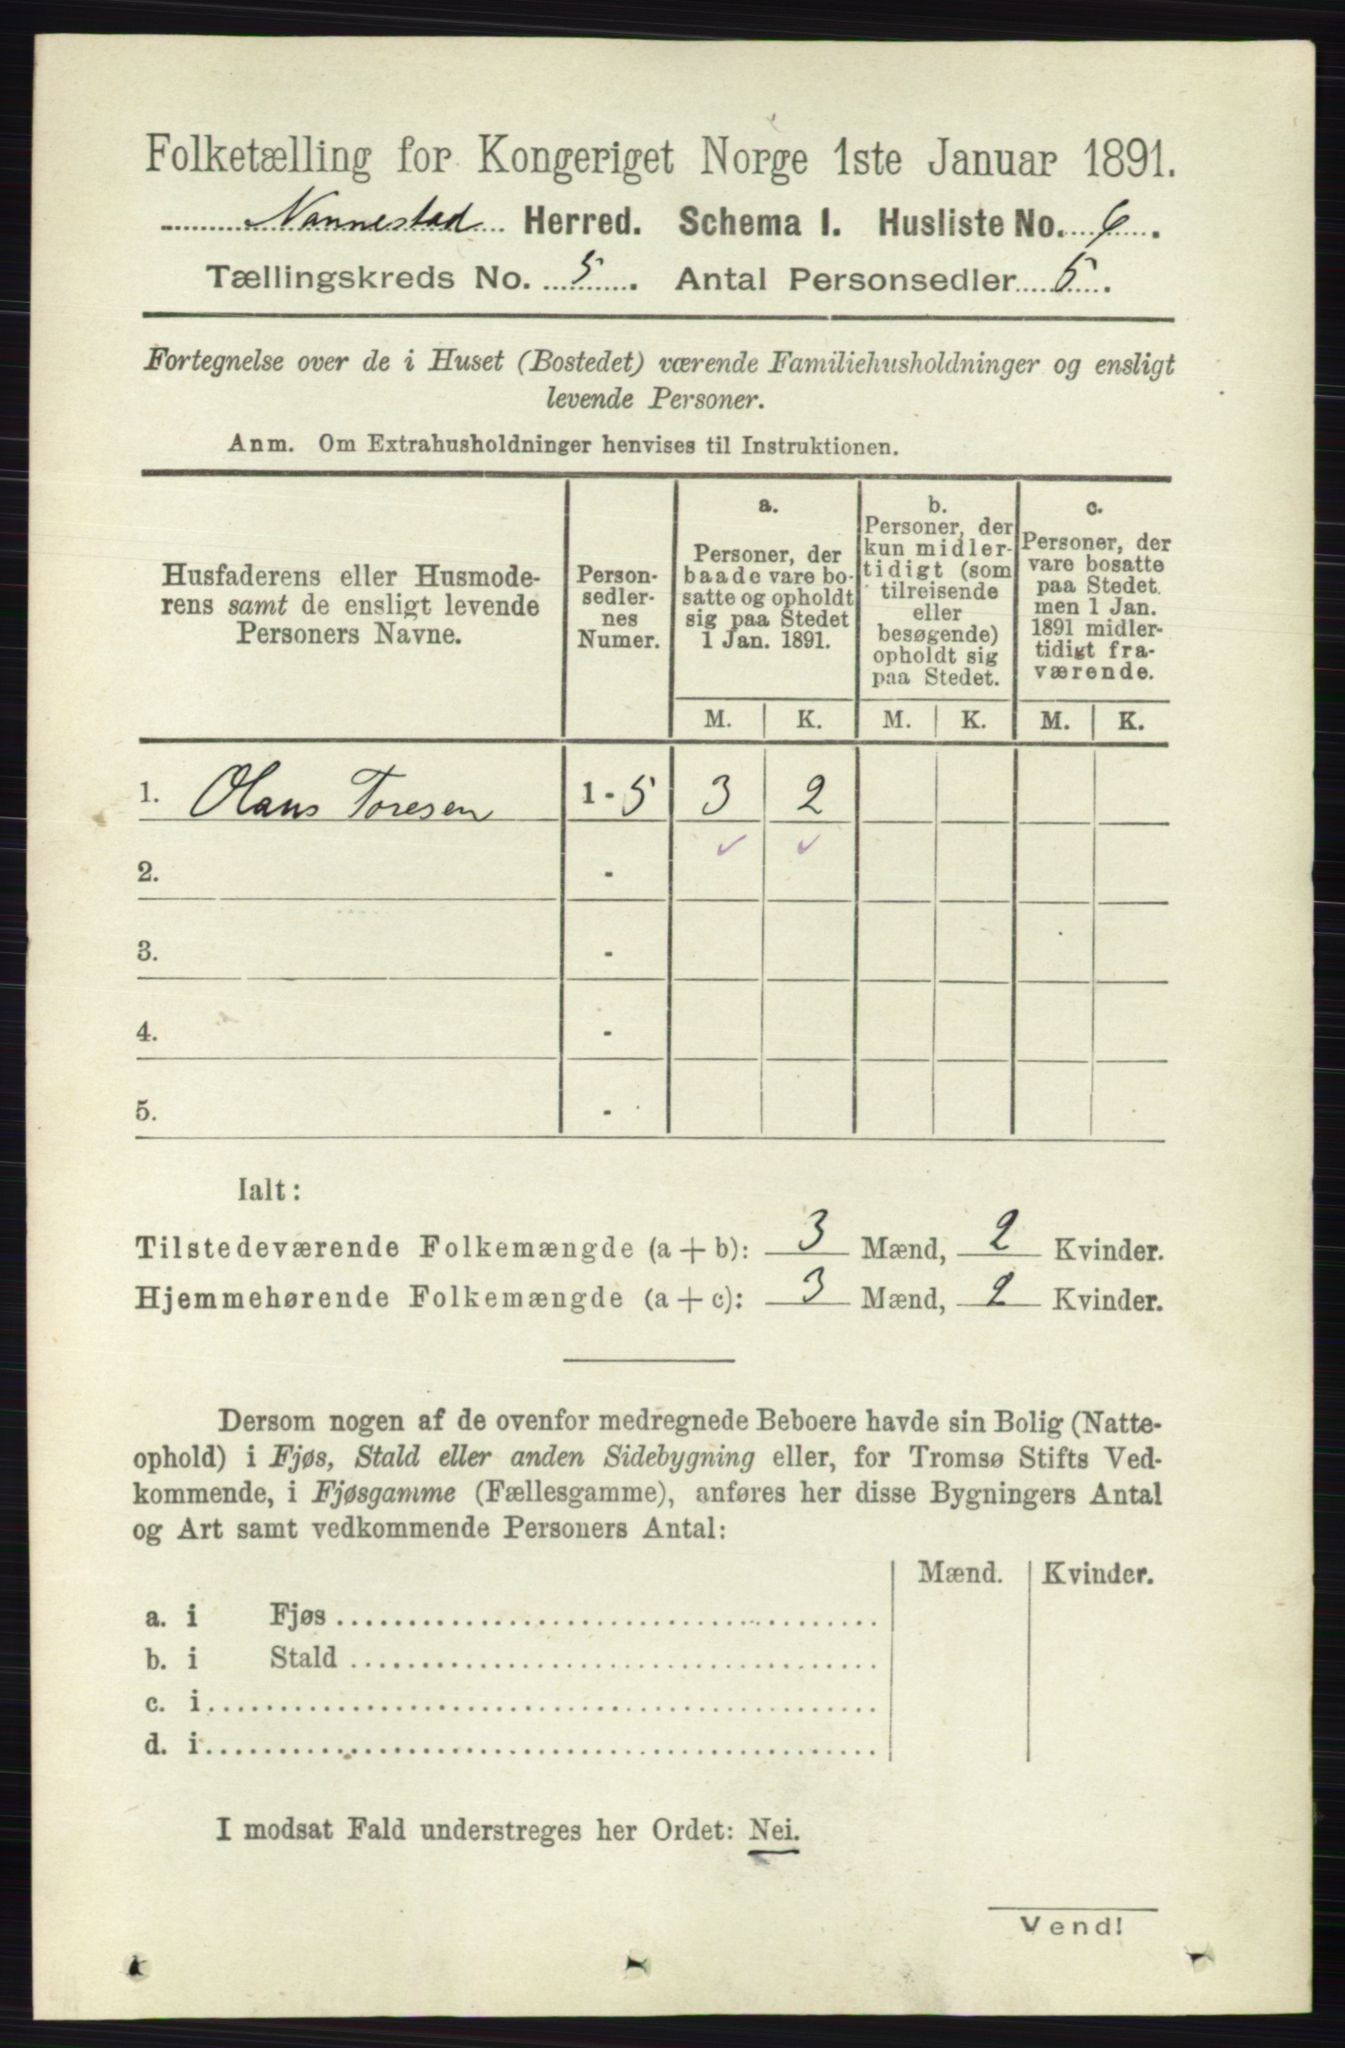 Folketælling for Kongeriget Norge 1ste Januar 1891.
Nannestad Herred. Schema I. Husliste No. 6.
Tællingskreds No. 5. Antal Personsedler 5.
Fortegnelse over de i Huset (Bostedet) værende Familiehusholdninger og ensligt
levende Personer.
Anm. Om Extrahusholdninger henvises til Instruktionen.
Husfaderens eller Husmode-
rens samt de ensligt levende
Personers Navne.
Person-
sedler-
nes
Numer.
a.
Personer, der
baade vare bo-
satte og opholdt
sig paa Stedet
1 Jan. 1891.
b.
Personer, der
kun midler-
tidigt (som
tilreisende
eller
besøgende)
opholdt sig
paa Stedet.
c.
Personer, der
vare bosatte
paa Stedet,
men 1 Jan.
1891 midler-
tidigt fra-
værende.
M. K. M. K. M. K.
1. Olaus Toresen 1 - 5 3 2
✓ ✓
2. -
3. -
4. -
5. -
Ialt:
Tilstedeværende Folkemængde (a + b): 3 Mænd, 2 Kvinder.
Hjemmehørende Folkemængde (a + c): 3 Mænd, 2 Kvinder.
Dersom nogen af de ovenfor medregnede Beboere havde sin Bolig (Natte-
ophold) i Fjøs, Stald eller anden Sidebygning eller, for Tromsø Stifts Ved-
kommende, i Fjøsgamme (Fællesgamme), anføres her disse Bygningers Antal
og Art samt vedkommende Personers Antal:
Mænd. Kvinder.
a. i Fjøs
b. i Stald
c. i
d. i
I modsat Fald understreges her Ordet: Nei.
Vend!